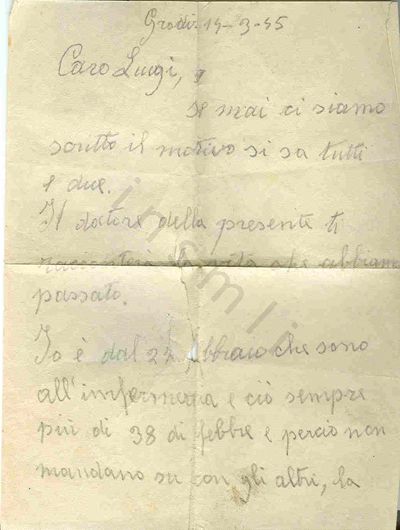 Grodi 14-3-45
Caro Luigi,
se mai ci siamo
scritto il motivo si sa tutti
e due.
Il datore della presente ti
raccontera vita che abbiamo
passato.
Io è dal 22 febbraio che sono
all'imfermeria e ciò sempre
più di 38 di febbre e perciò non
mandano su con gli altri, ha
insmli